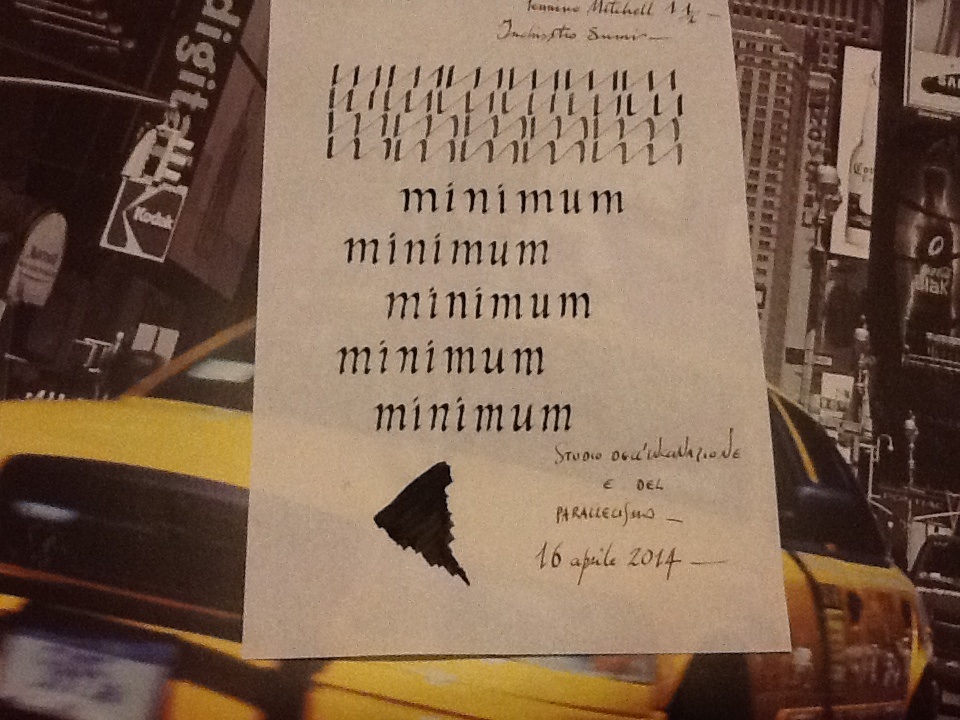 Pennino Mitchell 1 1/2 —
Inchiostro Sumi —
minimum
minimum
minimum
minimum
minimum
STUDIO DELL'INCLINAZIONE
E DEL
PARALLELISMO —
16 aprile 2014 —
digital
Kodak
Coro
O
Blak